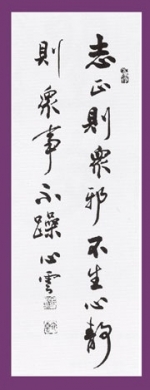 志正則衆邪不生心静
則衆事不躁 心雲